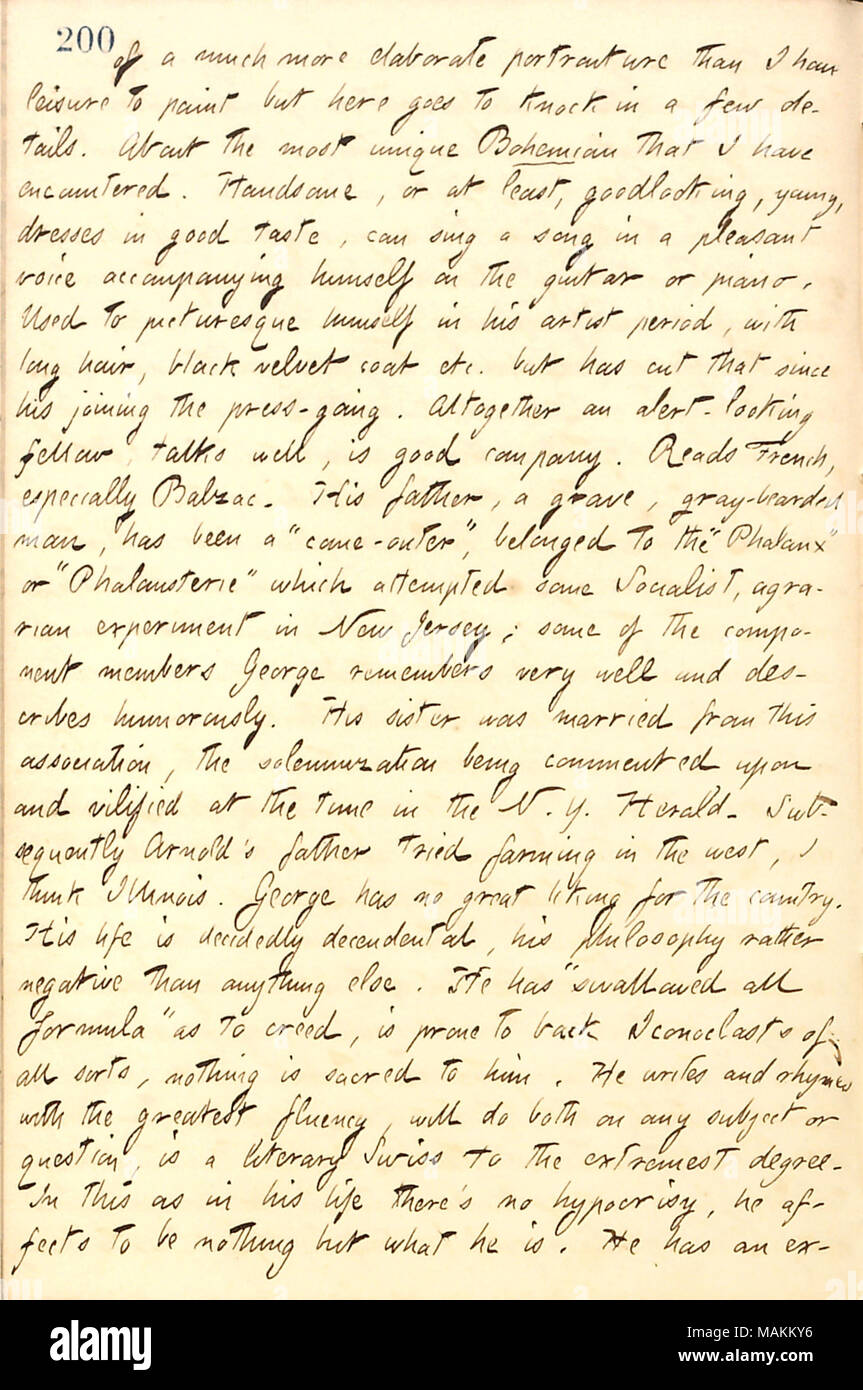 200
of a much more elaborate portraiture than I have
leisure to paint but here goes to knock in a few de-
tails. About the most unique Bohemian that I have
encountered. Handsome, or at least, goodlooking, young,
dresses in good taste, can sing a song in a pleasant
voice accompanying himself on the guitar or piano.
Used to picturesque himself in his artist period, with
long hair, black velvet coat etc. but has cut that since
his joining the press-gang. Altogether an alert-looking
fellow, talks well, is good company. Reads French,
especially Balzac. His father, a grave, gray-bearded
man, has been a "come-outer", belonged to the "Phalanx"
or "Phalansterie" which attempted some Socialist, agra-
rian experiment in New Jersey; some of the compo-
nent members George remembers very well and des-
cribes humorously. His sister was married from this
association, the solemnization being commented upon
and vilified at the time in the N. Y. Herald. Sub-
sequently Arnold's father tried farming in the west, I
think Illinois. George has no great liking for the country.
His life is decidedly decendental, his philosophy rather
negative than anything else. He has "swallowed all
formula" as to creed, is prone to back Iconoclasts of
all sorts, nothing is sacred to him. He writes and rhymes
with the greatest fluency, will do both on any subject or
question, is a literary Swiss to the extremest degree.
In this as in his life there's no hypocrisy, he af-
fects to be nothing but what he is. He has an ex-
alamy
Image ID: MAKKY6
www.alamy.com